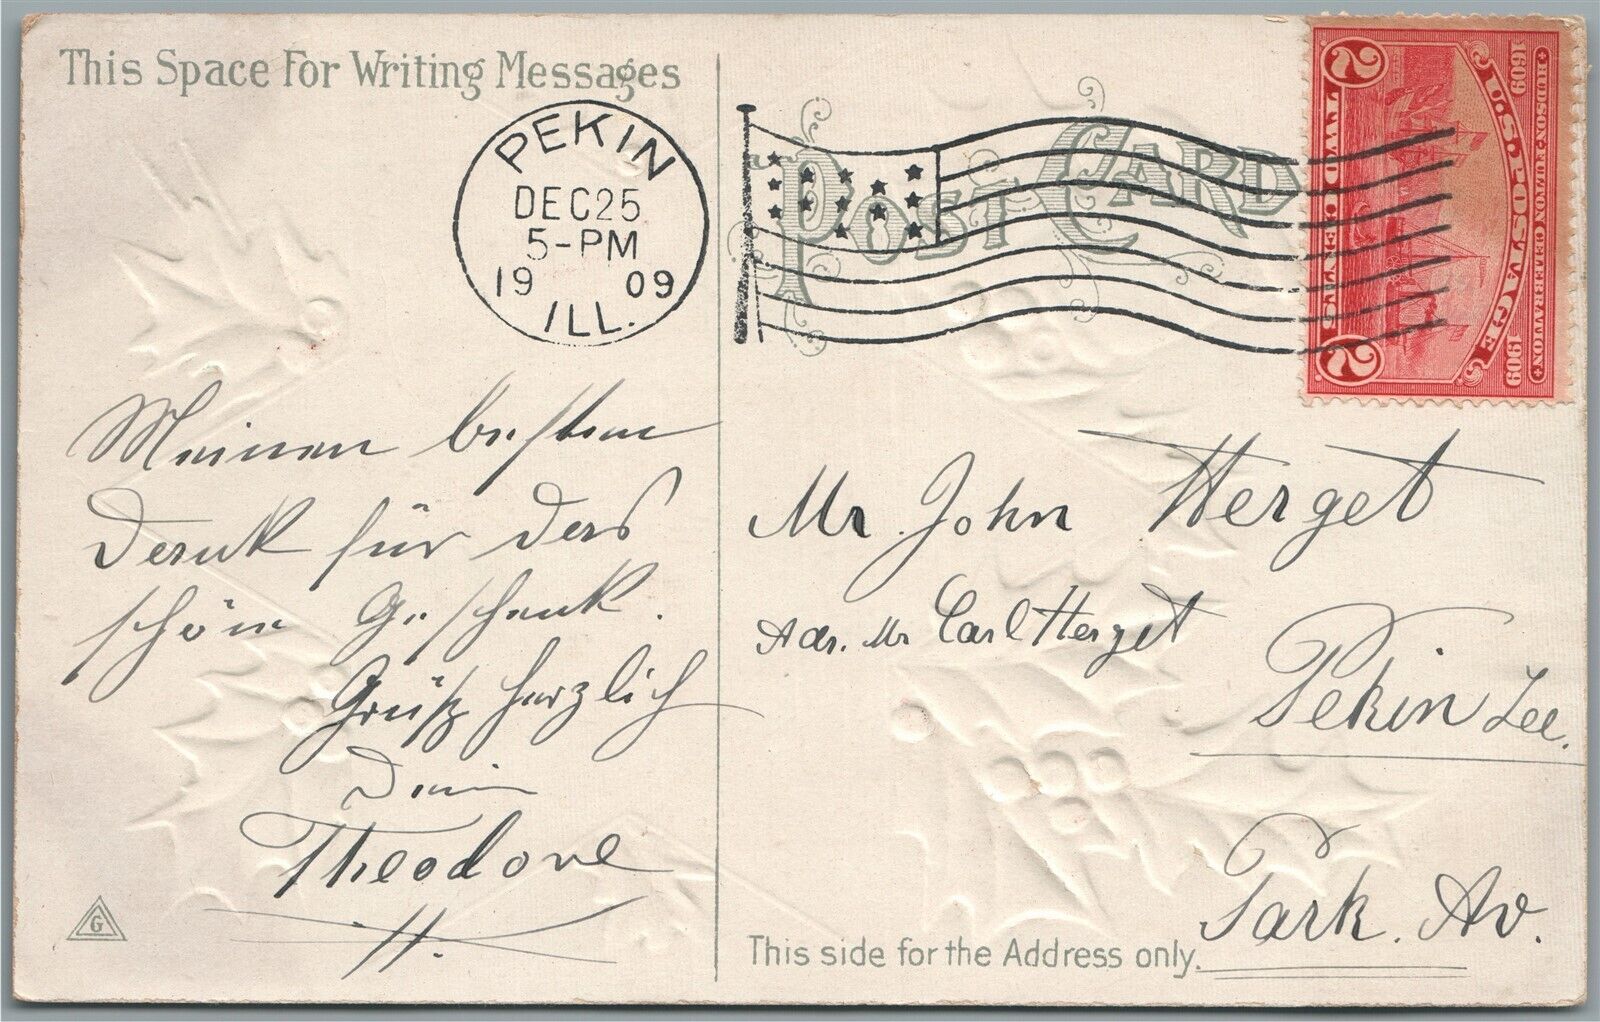 This Space For Writing Messages
PEKIN
DEC 25
5-PM
19 09
ILL.
POST CARD
1609 HUDSON-FULTON CELEBRATION 1909
U.S. POSTAGE
2 TWO CENTS 2
Meinen besten
Dank für das
schöne Geschenk.
Grüße herzlich
Dein
Theodore
H.
G
Mr. John Herget
Adr. Mr Carl Herget
Pekin Ill.
Park. Av.
This side for the Address only.